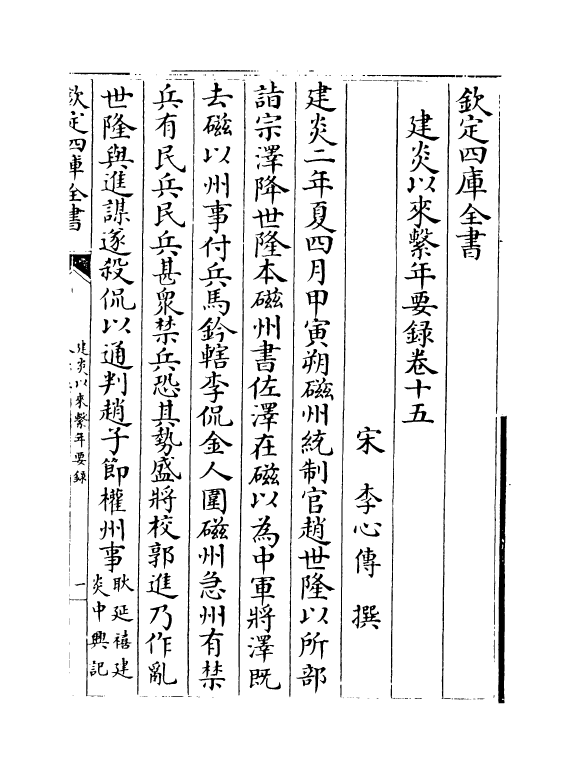 欽定四庫全書
建炎以來繫年要録卷十五
宋 李心傳 撰
建炎二年夏四月甲寅朔磁州統制官趙世隆以所部
詣宗澤降世隆本磁州書佐澤在磁以為中軍將澤既
去磁以州事付兵馬鈐轄李侃金人圍磁州急州有禁
兵有民兵民兵甚衆禁兵恐其勢盛將校郭進乃作亂
世隆與進謀遂殺侃以通判趙子節權州事
耿延禧建
炎中興記
欽定四庫全書
建炎以來繫年要録
一